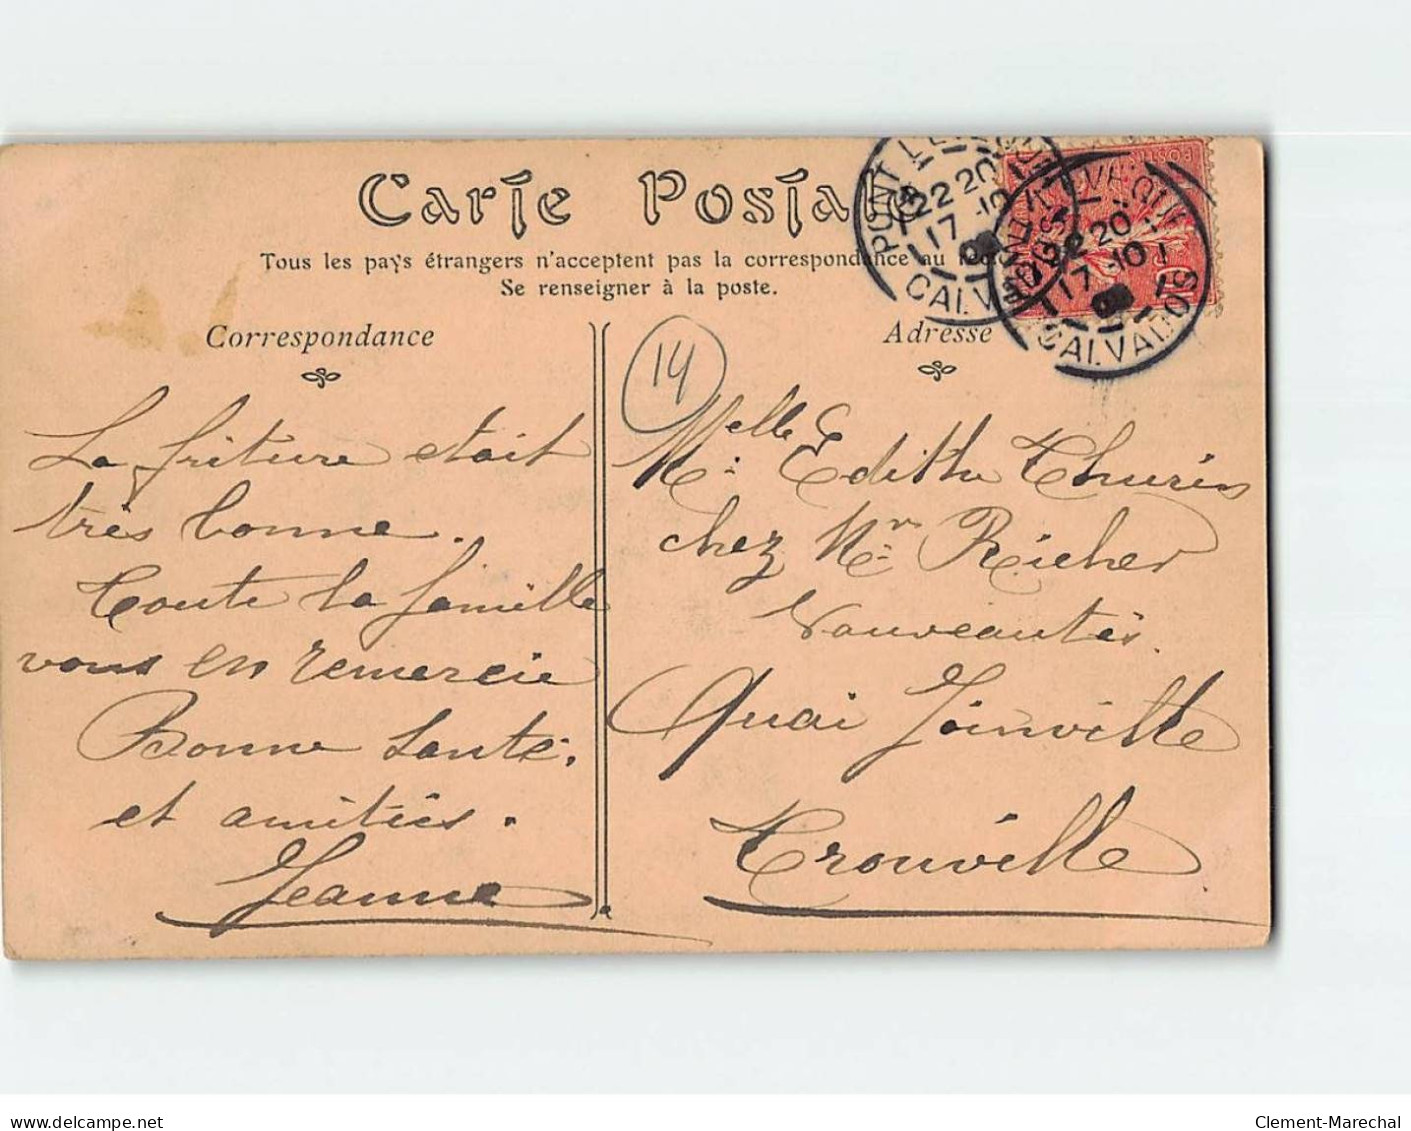 Carte Postale
Tous les pays étrangers n'acceptent pas la correspondance au recto
Se renseigner à la poste.
Correspondance
La friture etait
très bonne.
Toute la famille
vous en remercie
Bonne Santé.
et amitiés.
Jeanne
Adresse
14
Melle Edithe Thurin
chez Mr Richer
Nouveautés
Quai Joinville
Trouville
PONT L'EVEQUE
22 20
17 -10
CALVADOS
PONT L'EVEQUE
22 20
17 -10
CALVADOS
delcampe.net
Clement-Marechal